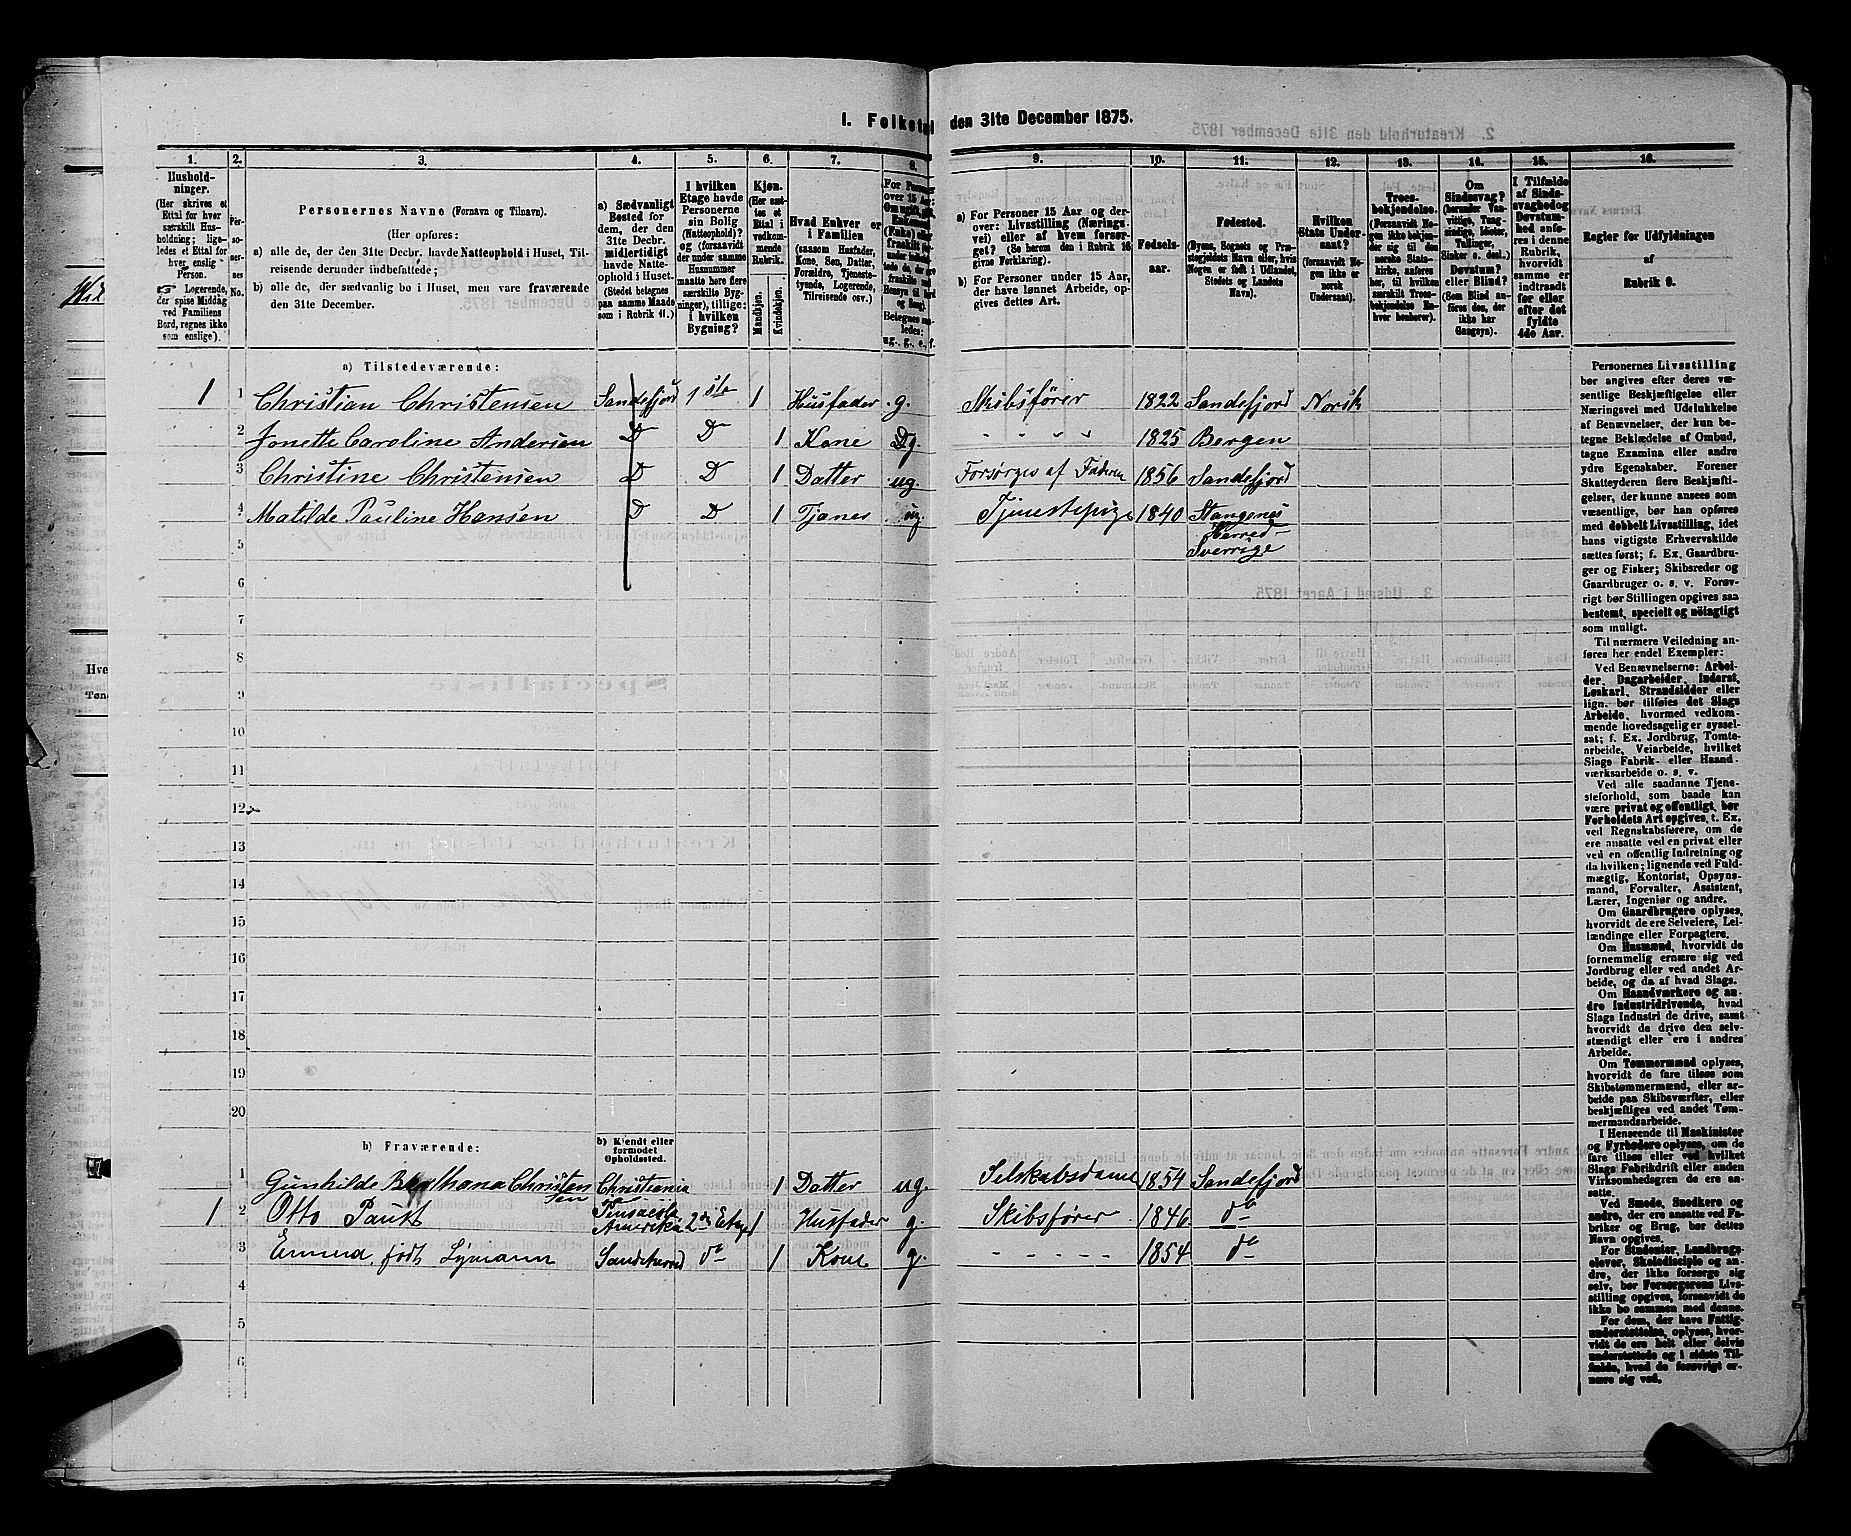 I. Folketal den 31te December 1875.
1. 2. 3. 4. 5. 6. 7. 8. 9. 10. 11. 12. 13. 14. 15. 16.
Husholdninger.
(Her skrives et Ettal for hver særskilt Husholdning; ligeledes et Ettal for hver enslig Person.
☞ Logerende, der spise Middag ved Familiens Bord, regnes ikke som enslige).
Personernes No.
Personernes Navne (Fornavn og Tilnavn).
(Her opføres:
a) alle de, der den 31te Decbr. havde Natteophold i Huset, Tilreisende derunder indbefattede;
b) alle de, der sædvanlig bo i Huset, men vare fraværende den 31te December.
a) Sædvanligt Bosted for dem, der den 31te Decbr. midlertidigt havde Natteophold i Huset.
(Stedet betegnes paa samme Maade som i Rubrik 11.)
I hvilken Etage havde Personerne sin Bolig (Natteophold)? og (forsaavidt der under samme Husnummer maatte høre flere særskilte Bygninger), tillige: i hvilken Bygning?
Kjøn.
(Her sættes et Ettal i vedkommende Rubrik.
Mandkjøn.
Kvindekjøn.
Hvad Enhver er i Familien
(saasom Husfader, Kone, Søn, Datter, Forældre, Tjenestetyende, Logerende, Tilreisende osv.)
ug., g., e., f.
a) For Personer 15 Aar og derover: Livsstilling (Næringsvei) eller af hvem forsørget? (Se herom den i Rubrik 16 givne Forklaring).
b) For Personer under 15 Aar, der have lønnet Arbeide, opgives dettes Art.
Fødselsaar.
Fødested.
(Byens, Sognets og Præstegjeldets Navn eller, hvis Nogen er født i Udlandet, Stedets og Landets Navn).
Hvilken Stats Undersaat?
(forsaavidt Nogen ikke er norsk Undersaat).
Troesbekjendelse.
(Forsaavidt Nogen ikke bekjender sig til den norske Statskirke, anføres her, til hvilken særskilt Troesbekjendelse Enhver henhører).
Om Sindssvag?
Døvstum? eller Blind?
I Tilfælde af Sindssvaghed og Døvstumhed anføres i denne Rubrik, hvorvidt samme er indtraadt før eller efter det fyldte 4de Aar.
Regler for Udfyldningen af Rubrik 9.
a) Tilstedeværende:
1 1 Christian Christensen Sandefjord 1 ste 1 Husfader g. Skibsfører 1822 Sandefjord Norsk
2 Jonette Caroline Andersen D D 1 Kone g. " " " " 1825 Bergen
3 Christine Christensen D D 1 Datter ug. Forsørges af Faderen 1856 Sandefjord
4 Matilde Pauline Hansen D D 1 Tjener ug. Tjenestepige 1840 Stangenes Herred Sverrige
5
6
7
8
9
10
11
12
13
14
15
16
17
18
19
20
b) Fraværende:
b) Kjendt eller formodet Opholdssted.
1 Gunhilde Christensen Christiania 1 Datter ug. Selskabsdame 1854 Sandefjord
1 2 Otto Paust Pensacola Amerika 2 den Etage 1 Husfader g. Skibsfører 1846 do
3 Emma, født Lymann Sandeherred do 1 Kone g. - - - - - 1854 do
4
5
6
Personernes Livsstilling
bør angives efter deres væ-
sentlige Beskjæftigelse eller
Næringsvei med Udelukkelse
af Benævnelser, der kun be-
tegne Beklædelse af Ombud,
tagne Examina eller andre
ydre Egenskaber. Forener
Skatteyderen flere Beskjæfti-
gelser, der kunne ansees som
væsentlige, bør han opføres
med dobbelt Livsstilling, idet
hans vigtigste Erhvervskilde
sættes først; f. Ex. Gaardbru-
ger og Fisker; Skibsreder og
Gaardbruger o. s. v. Forøv-
rigt bør Stillingen opgives saa
bestemt, specielt og nöiagtigt
som muligt.
Til nærmere Veiledning an-
føres her endel Exempler:
Ved Benævnelserne: Arbei-
der, Dagarbeider, Inderst,
Løskarl, Strandsidder eller
lign. bør tilføies det Slags
Arbeide, hvormed vedkom-
mende hovedsagelig er syssel-
sat; f. Ex. Jordbrug, Tomte-
arbeide, Veiarbeide, hvilket
Slags Fabrik- eller Haand-
værksarbeide o. s. v.
Ved alle saadanne Tjene-
steforhold, som baade kan
være privat og offentligt, bør
Forholdets Art opgives, t. Ex.
ved Regnskabsførere, om de
ere ansatte ved en privat eller
ved en offentlig Indretning og
da hvilken; lignende ved Fuld-
mægtig, Kontorist, Opsyns-
mand, Forvalter, Assistent,
Lærer, Ingeniør og andre.
Om Gaardbrugere oplyses,
hvorvidt de ere Selveiere, Lei-
lændinge eller Forpagtere.
Om Husmænd, hvorvidt de
fornemmelig ernære sig ved
Jordbrug eller ved andet Ar-
beide, og da af hvad Slags.
Om Haandværkere og an-
dre Industridrivende, hvad
Slags Industri de drive, samt
hvorvidt de drive den selv-
stændigt eller ere i andres
Arbeide.
Om Tømmermænd oplyses,
hvorvidt de fare tilsøs som
Skibstømmermænd, eller ar-
beide paa Skibsværfter, eller
beskjæftiges ved andet Tøm-
mermandsarbeide.
I Henseende til Maskinister
og Fyrbødere oplyses, om de
fare tilsøs eller ved hvilket
Slags Fabrikdrift eller anden
Virksomhedsgren de ere an-
satte.
Ved Smede, Snedkere og
andre, der ere ansatte ved Fa-
briker og Brug, bør dettes
Navn opgives.
For Studenter, Landbrugs-
elever, Skoledisciple og an-
dre, der ikke forsørge sig
selv, bør Forsørgerens Livs-
stilling opgives, forsaavidt de
ikke bo sammen med denne.
For dem, der have Fattig-
understøttelse, oplyses, hvor-
vidt de ere helt eller delvis
understøttede og i sidste Til-
fælde, hvad de forøvrigt er-
nære sig ved.